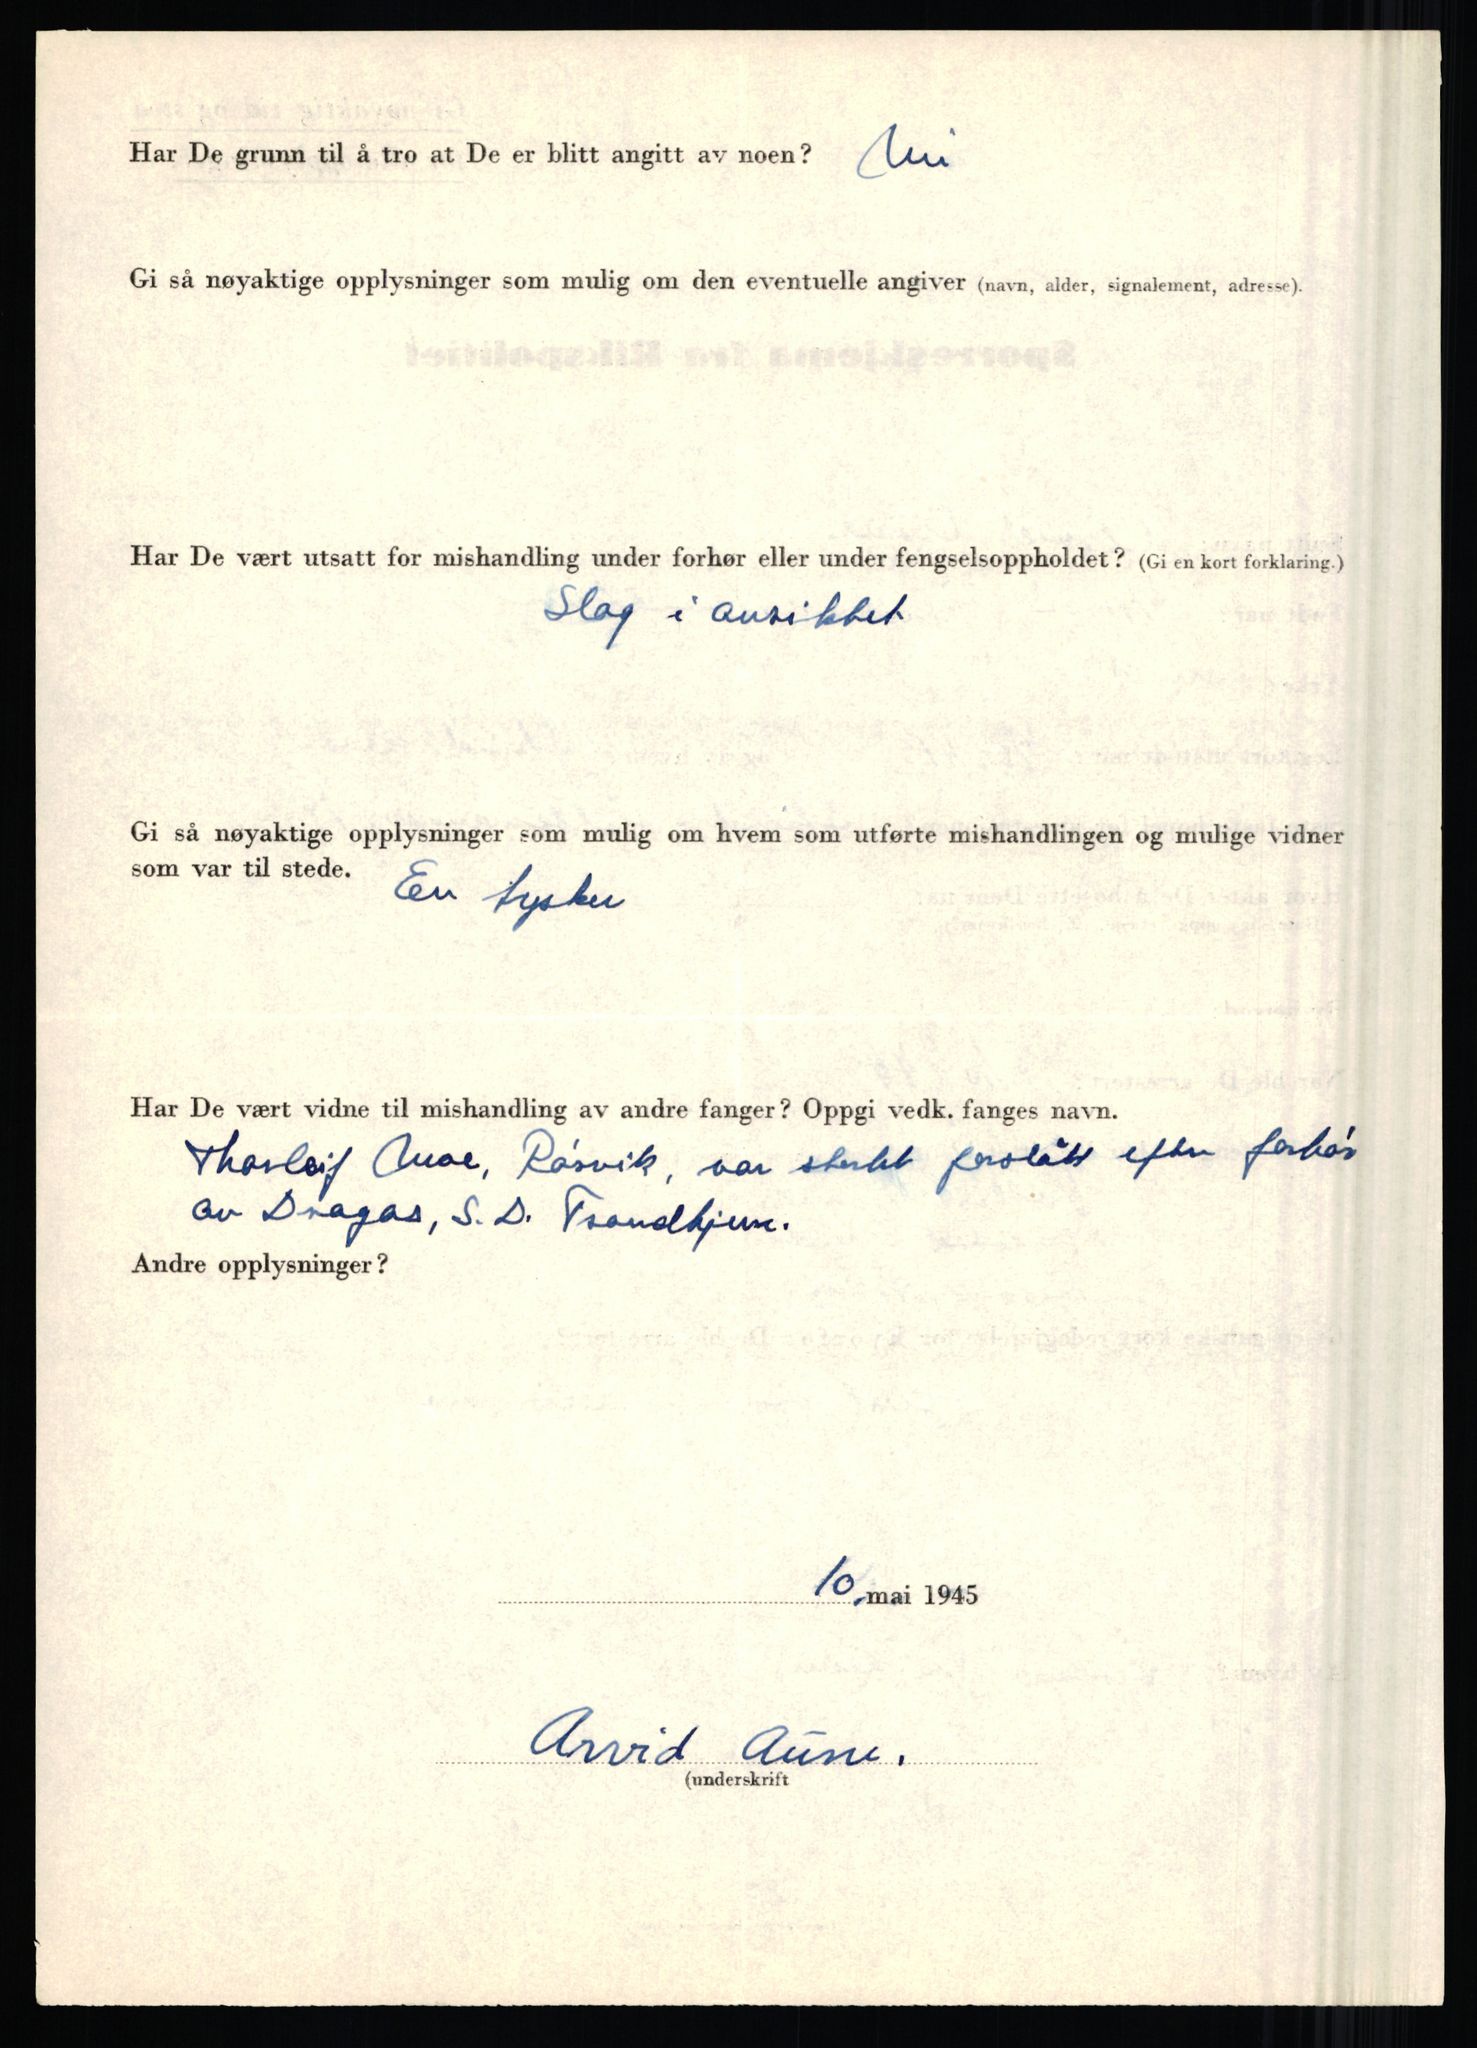 Har De grunn til å tro at De er blitt angitt av noen? Nei
Gi så nøyaktige opplysninger som mulig om den eventuelle angiver (navn, alder, signalement, adresse).
Har De vært utsatt for mishandling under forhør eller under fengselsoppholdet? (Gi en kort forklaring.)
Slag i ansiktet
Gi så nøyaktige opplysninger som mulig om hvem som utførte mishandlingen og mulige vidner
som var til stede. En tysker
Har De vært vidne til mishandling av andre fanger? Oppgi vedk. fanges navn.
Thorleif Moe, Rørvik, var sterkt forslått efter forhør
av Dragas, S. D. Trondhjem.
Andre opplysninger?
10. mai 1945
Arvid Aune.
(underskrift